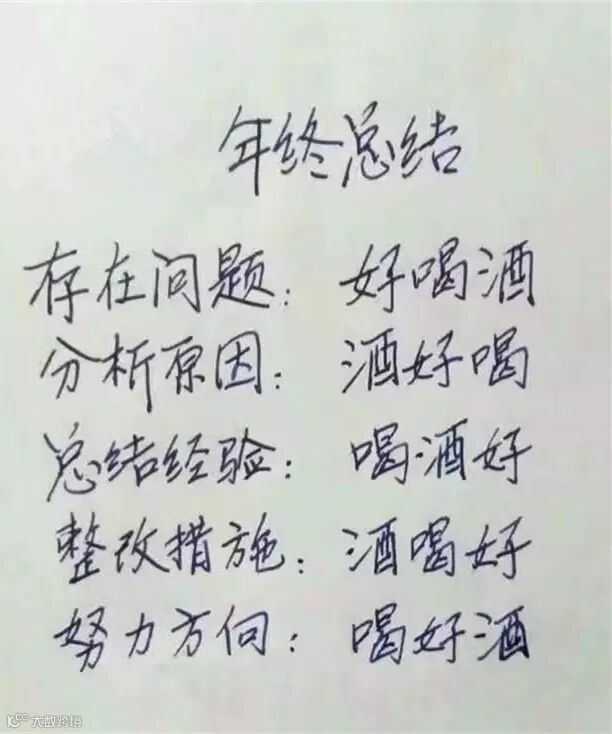 年终总结
存在问题：好喝酒
分析原因：酒好喝
总结经验：喝酒好
整改措施：酒喝好
努力方向：喝好酒
大数跨境